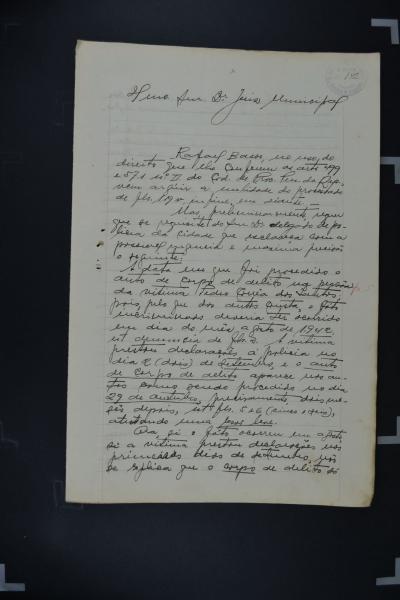 Ilmo Snr Dr Juiz Municipal
Rafael Bacos, no uso do
direito que lhe conferem os arts 499
e 571 nº II do Cod. de Proc. Pen. da Rep.,
vem arguir a nulidade do processado
de fls. 19 v. in fine, em diante.
Mas, preliminarmente, requer
que se requisite do Snr. Dr. delegado de po-
licia da cidade que esclareça com a
possivel urgencia e maxima precisão
o seguinte:
A data em que foi procedido o
auto de corpo de delito na pessôa
da vitima Pedro Corrêa dos Santos,
pois, pelo que dos autos consta, o fato
incriminado deveria ter ocorrido
em dia do mês agosto de 1942,
ut denuncia de fls. 2. A vitima
prestou declarações á policia no
dia 2 (dois) de setembro, e o auto
de corpo de delito aparece nos au-
tos como sendo procedido no dia
29 de outubro, precisamente, dois me-
sês depois, ut fls. 5 e 6 (cinco e seis),
atestando uma lesão leve.
Ora, si o fato ocorreu em agosto,
si a vitima prestou declarações nos
primeiros dias de setembro, não
se explica que o corpo de delito só